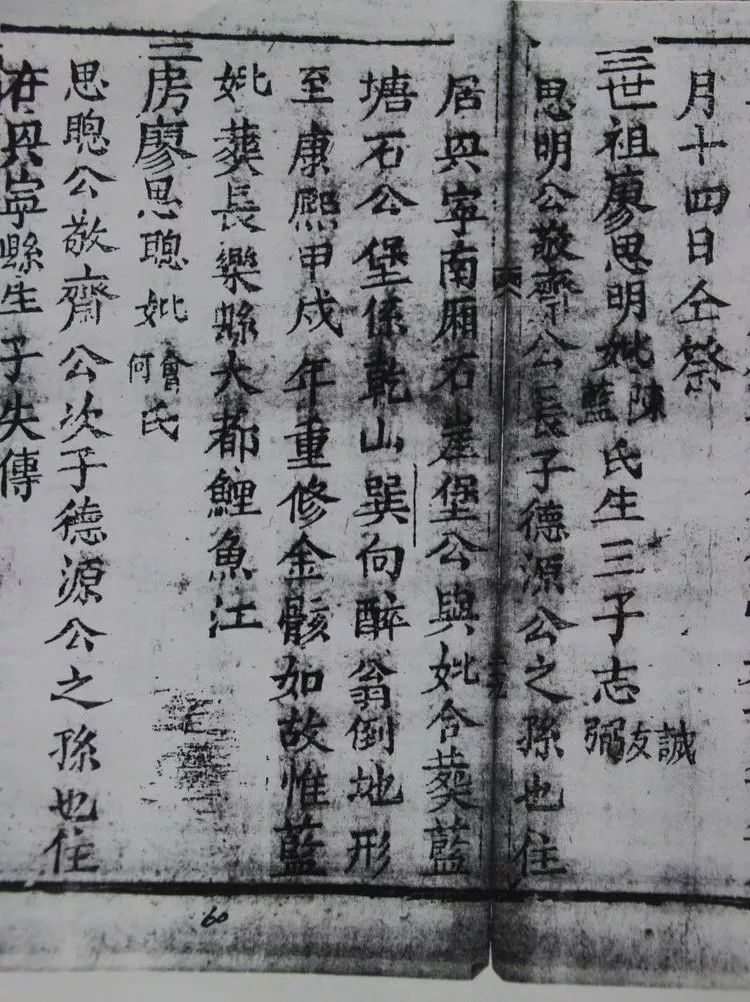 月十四日仝祭
三世祖廖思明妣陳藍氏生三子志誠友弼
思明公敬齋公長子德源公之孫也住
居興寧南廂石崖堡公與妣合葬藍
塘石公堡係乾山巽向醉翁倒地形
至康熙甲戍年重修金骸如故惟藍
妣葬長樂縣大都鯉魚江
二房廖思聰妣曾何氏
思聰公敬齋公次子德源公之孫也住
在興寧縣生子失傳
60